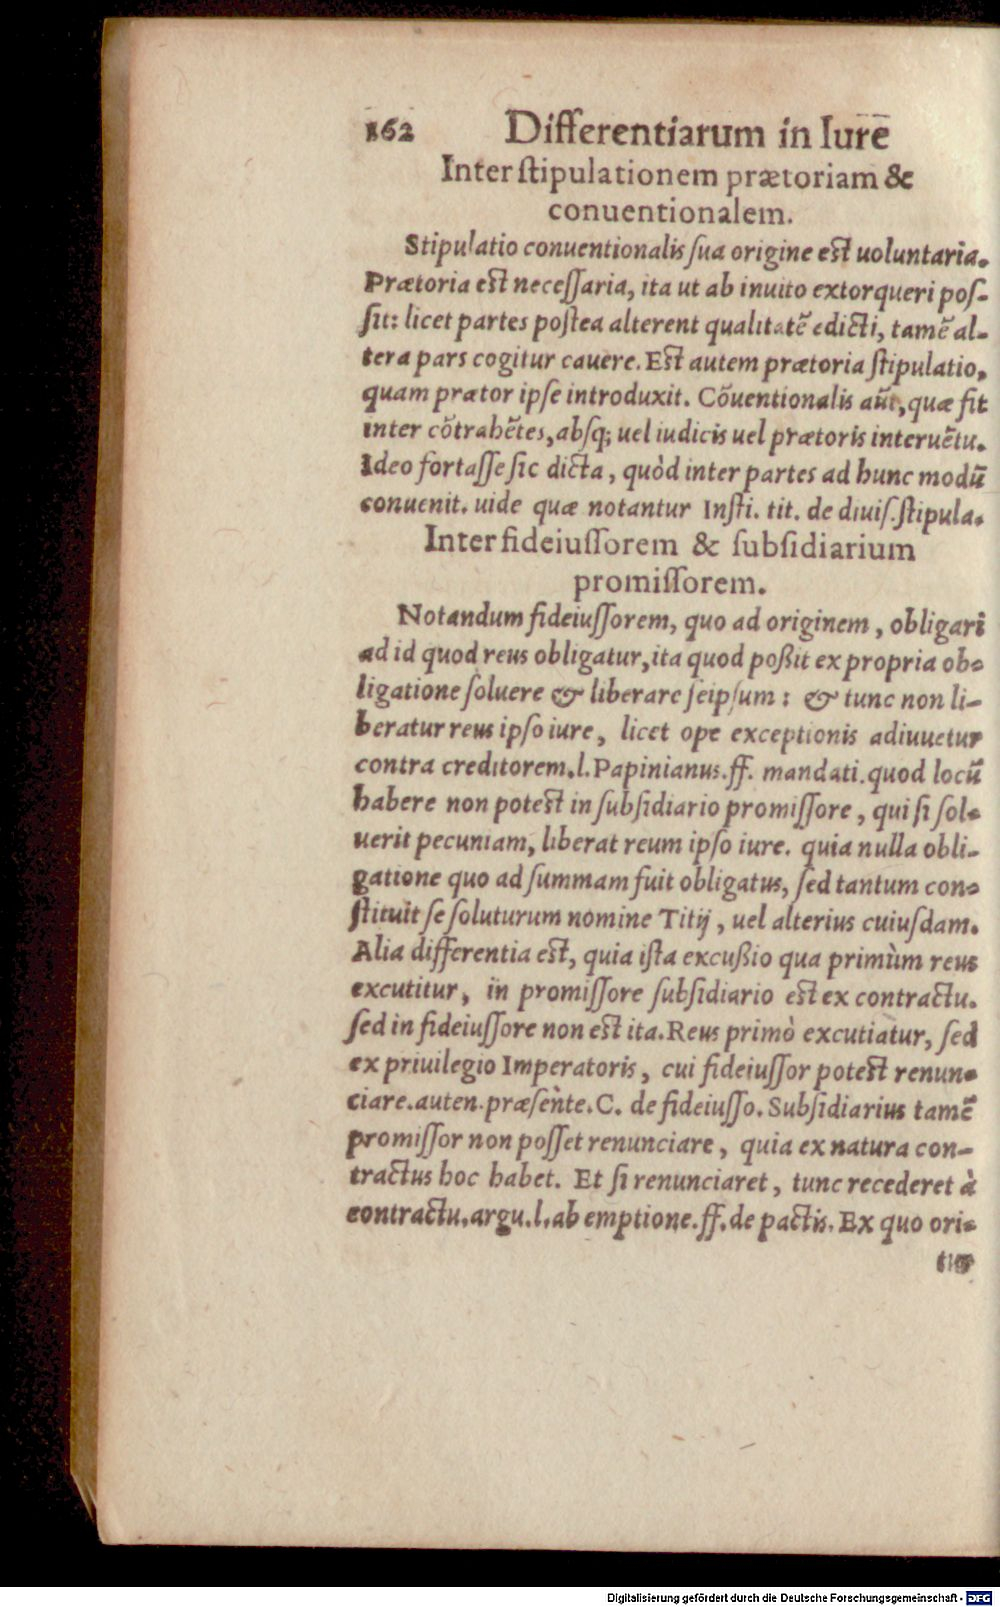 162 Differentiarum in Iure
Inter stipulationem prætoriam &
conuentionalem.
Stipulatio conuentionalis sua origine est uoluntaria.
Prætoria est necessaria, ita ut ab inuito extorqueri pos-
sit: licet partes postea alterent qualitatẽ edicti, tamẽ al-
tera pars cogitur cauere. Est autem prætoria stipulatio,
quam prætor ipse introduxit. Cõuentionalis aũt, quæ fit
inter cõtrahẽtes, absq; uel iudicis uel prætoris interuẽtu.
Ideo fortasse sic dicta, quòd inter partes ad hunc modũ
conuenit. uide quæ notantur Insti. tit. de diuis. stipula.
Inter fideiussorem & subsidiarium
promissorem.
Notandum fideiussorem, quo ad originem, obligari
ad id quod reus obligatur, ita quod poßit ex propria ob-
ligatione soluere & liberare seipsum: & tunc non li-
beratur reus ipso iure, licet ope exceptionis adiuuetur
contra creditorem. l. Papinianus. ff. mandati. quod locũ
habere non potest in subsidiario promissore, qui si sol-
uerit pecuniam, liberat reum ipso iure. quia nulla obli-
gatione quo ad summam fuit obligatus, sed tantum con-
stituit se soluturum nomine Titij, uel alterius cuiusdam.
Alia differentia est, quia ista excußio qua primùm reus
excutitur, in promissore subsidiario est ex contractu.
sed in fideiussore non est ita. Reus primò excutiatur, sed
ex priuilegio Imperatoris, cui fideiussor potest renun-
ciare. auten. præsente. C. de fideiusso. Subsidiarius tamẽ
promissor non posset renunciare, quia ex natura con-
tractus hoc habet. Et si renunciaret, tunc recederet à
contractu. argu. l. ab emptione. ff. de pactis. Ex quo ori-
tur
Digitalisierung gefördert durch die Deutsche Forschungsgemeinschaft - DFG